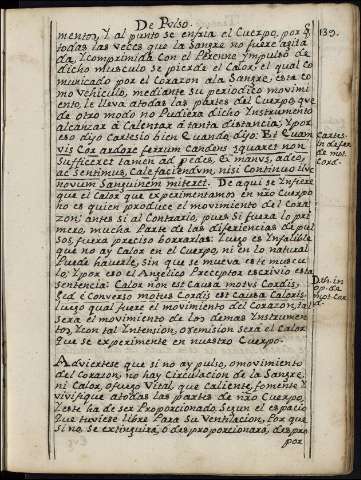 De Pulso.
139.
mentos, Y al punto se enfria el Cuerpo, porq̃
todas las veces que la Sangre no fuere agita
da, Y comprimida con el Perenne Ympulso de
dicho musculo se pierde el Calor; el qual co
municado por el Corazon ala Sangre, esta co
mo vehiculo, mediante Su periodico movimi
ento, le lleva atodas las partes del Cuerpo, que
de otro modo no Pudiera dicho Ynstrumento
alcanzar â Calentar â tanta distancia; Y por
eso dijo Cartesio bien Cuando dijo: Et Quam
vis Cor ardore ferrum candens æquaret non
Sufficeret tamen ad pedes, Et manus, adeo,
ac Sentimus, Calefaciendum, nisi Continuo ille
novum Sanguinem mitteret. De aqui se Ynfiere
que el Calor que experimentamos en nr̃o Cuerpo
no es quien produce el movimiento del Cora
zon; antes si al Contrario, pues Si fuera lo pri
mero, mucha Parte de las diferencias de pul
sos, fuera preciso borrarlas: Luego es Ynfalible
que no ay Calor en el Cuerpo, ni en lo natural
Puede haverle, sin que se mueva este muscu
lo; Y por eso el Angelico Preceptor escrivio esta
Sentencia: Calor non est Causa motus Cordis,
Sed è Converso motus Cordis est Causa Caloris.
Luego qual fuere el movimiento del Corazon, tal
Será el movimiento de los demas Ynstrumen
tos, Y con tal Yntension, ô remision será el Calor
Que se experimente en nuestro Cuerpo.
Cartes.
in defen.
de mot.
Cord.
D.th. in
op. de
mot. Cor
d.
Adviertese que si no ay pulso, o movimiento
del Corazon, no hay Circulacion de la Sangre,
ni Calor, ô fuego Vital, que caliente, fomente Y
vivifique atodas las partes de nr̃o Cuerpo;
Y este ha de ser Proporcionado, Segun el espacio
Que tuviese libre Para Su Ventilacion, Por que
Si no, Se extinguirà, ô desproporcionarà, despro
por